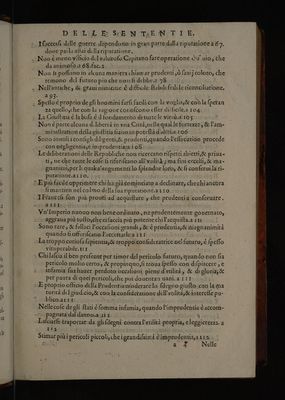 DELLE SENTENTIE.
I successi delle guerre dipendono in gran parte dalla riputatione a 67.
doue poi la assai della riputatione.
Non è meno vfficio del valoroso Capitano far operatione da sauio, che
da animoso. a 68. fac. 2
Non si possono in alcuna maniera chiamar prudenti, ò saui coloro, che
temono del futuro più che non si debbe. a 78
Nell'antiche, & graui nimicitie è difficile stabil fede di riconciliatione.
a 93.
Spesso è proprio de gli huomini farsi facili con la voglia, & con la speran
za quello, che con la ragione conoscono esser difficile. a 104
La Giustitia è la basi & il fondamento di tutte le virtù. a 105
Non è parte alcuna di libertà in vna Città, nella quale le sentenze, & l'am
ministration della giustitia siano in potestà d'altrui. a 106
Sono inutili i consigli diligenti, & prudenti, quando l'essecutione procede
con negligentia, & imprudentia. a 108
Le deliberationi delle Republiche non ricercano rispetti abietti, & priua
ti, ne che tutte le cose si riferiscano all'vtilità; ma fini eccelsi, & ma-
gnanimi, per li quali s'augumenti lo splendor loro, & si conserui la ri-
putatione. a 110.
E più facile opprimere chi ha già cominciato a declinare, che chi ancora
si mantien nel colmo della sua riputatione. a 110
I Francesi son più pronti ad acquistare, che prudenti a conseruare.
a 111
Vn'Imperio nuouo non bene ordinato, ne prudentemente gouernato,
aggraua più tosto, che ei faccia più potente chi l'acquista. a 111
Sono rare, & fallaci l'occasioni grandi, & è prudentia, & magnanimità
quando si offeriscono l'accettarle. a 111
La troppo curiosa sapientia, & troppo consideratrice del futuro, è spesso
vituperabile. 111
Chi lascia il ben presente per timor del pericolo futuro, quando non sia
pericolo molto certo, & propinquo, si troua spesso con dispiacere, &
infamia sua hauer perduto occasioni piene d'vtilità, & di gloria, &
per paura di quei pericoli, che poi diuentano vani. a 111
E proprio officio della Prudentia moderare lo sdegno giusto con la ma
turità del giudicio, & con la consideratione dell'vtilità, & interesse pu-
blico. a 112
Nelle cose de gli stati è somma infamia, quando l'imprudentia è accom-
pagnata dal danno. a 112
Lasciarsi trasportar da gli sdegni contra l'vtilità propria, è leggierezza. a
112
Stimar più i pericoli piccoli, che i grandissimi è imprudentia. a 112.
Nelle